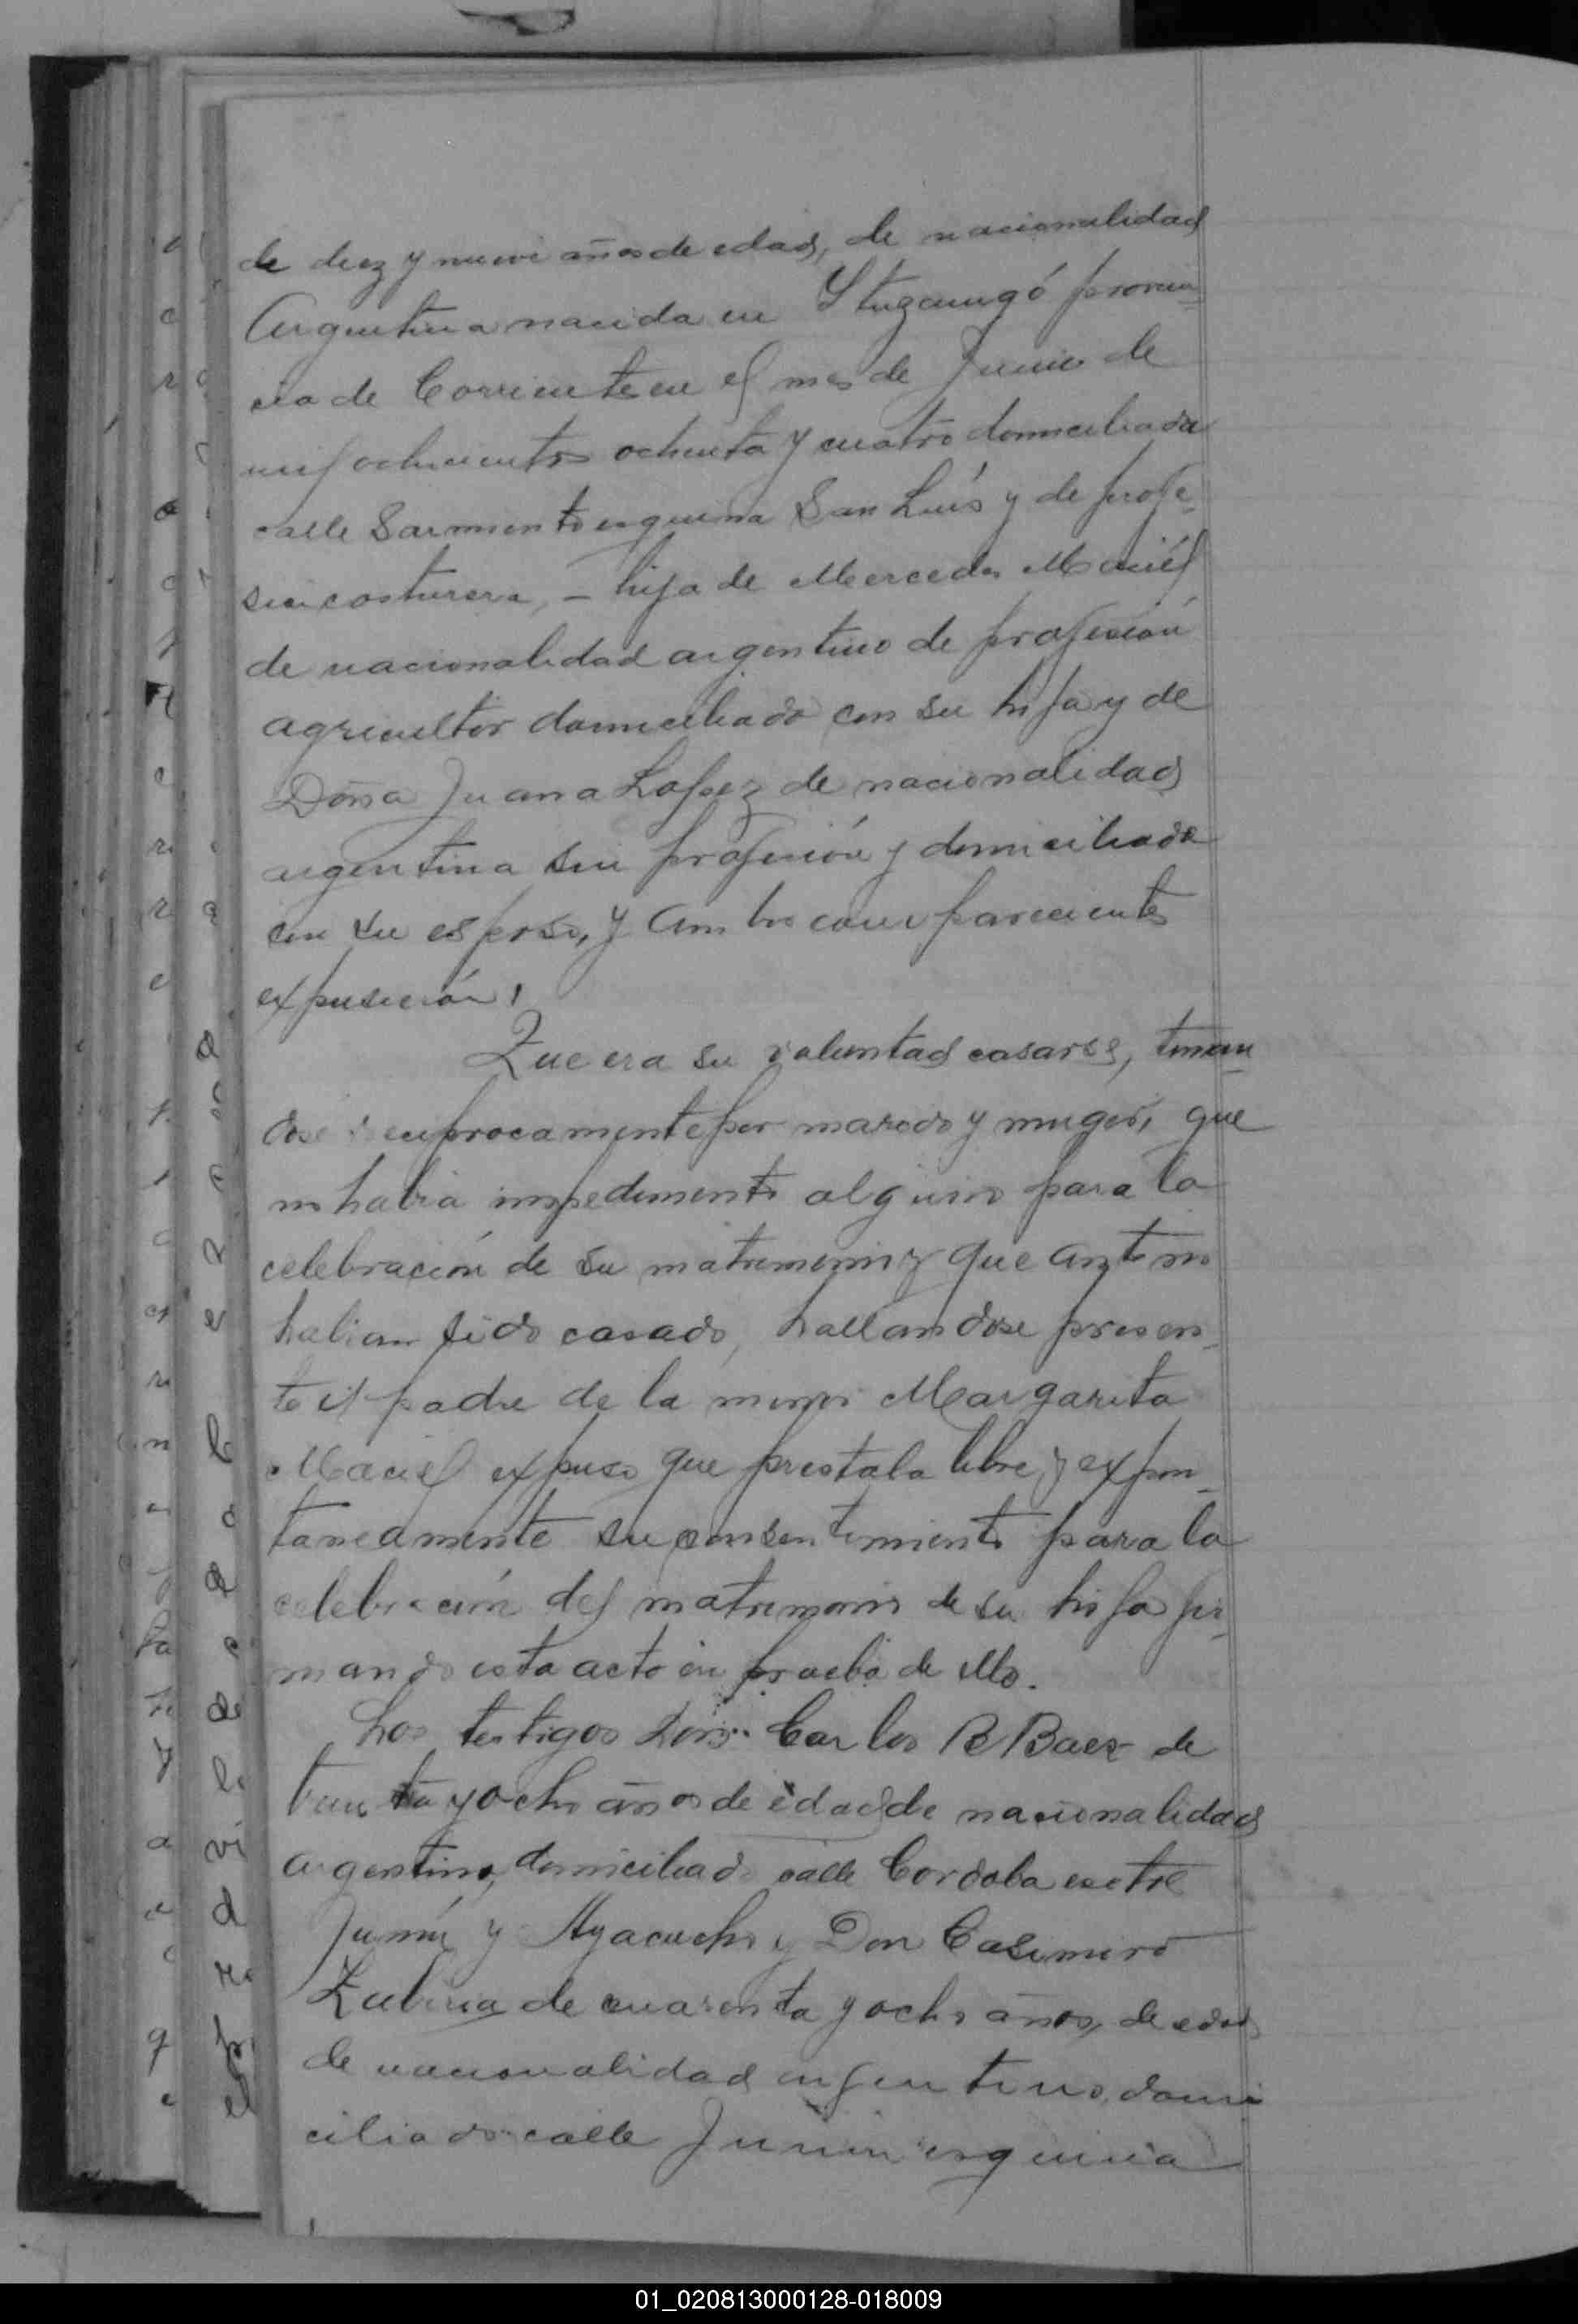 de diez y nueve años de edad, de nacionalidad
Argentina nacida en Ytuzaingó provin-
cia de Corrientes en el mes de Junio de
mil ochocientos ochenta y cuatro domiciliada
calle Sarmiento esquina San Luís y de profe-
sion costurera, – hija de Mercedes Maciél
de nacionalidad argentino de profesión
agricultor domiciliado con su hija y de
Doña Juana Lopez de nacionalidad
argentina sin profesión y domiciliada
con su esposo, y ambos comparecientes
expusieron:
Que era su voluntad casarse, toman-
dose reciprocamente por marido y muger, que
no habia impedimento alguno para la
celebración de su matrimonio y que antes no
habian sido casado, hallandose presen-
te el padre de la menor Margarita
Maciel expuso que prestaba libre y expon-
taneamente su consentimiento para la
celebración del matrimonio de su hija fir-
mando esta acta en prueba de ello.
Los testigos Don Carlos B Baez de
treinta y ocho años de edad de nacionalidad
argentino, domiciliado calle Cordoba entre
Junín y Ayacucho y Don Casimiro
Zubiria de cuarenta y ocho años, de edad
de nacionalidad argentino, domi
ciliado calle Junin esquina
01_020813000128-018009